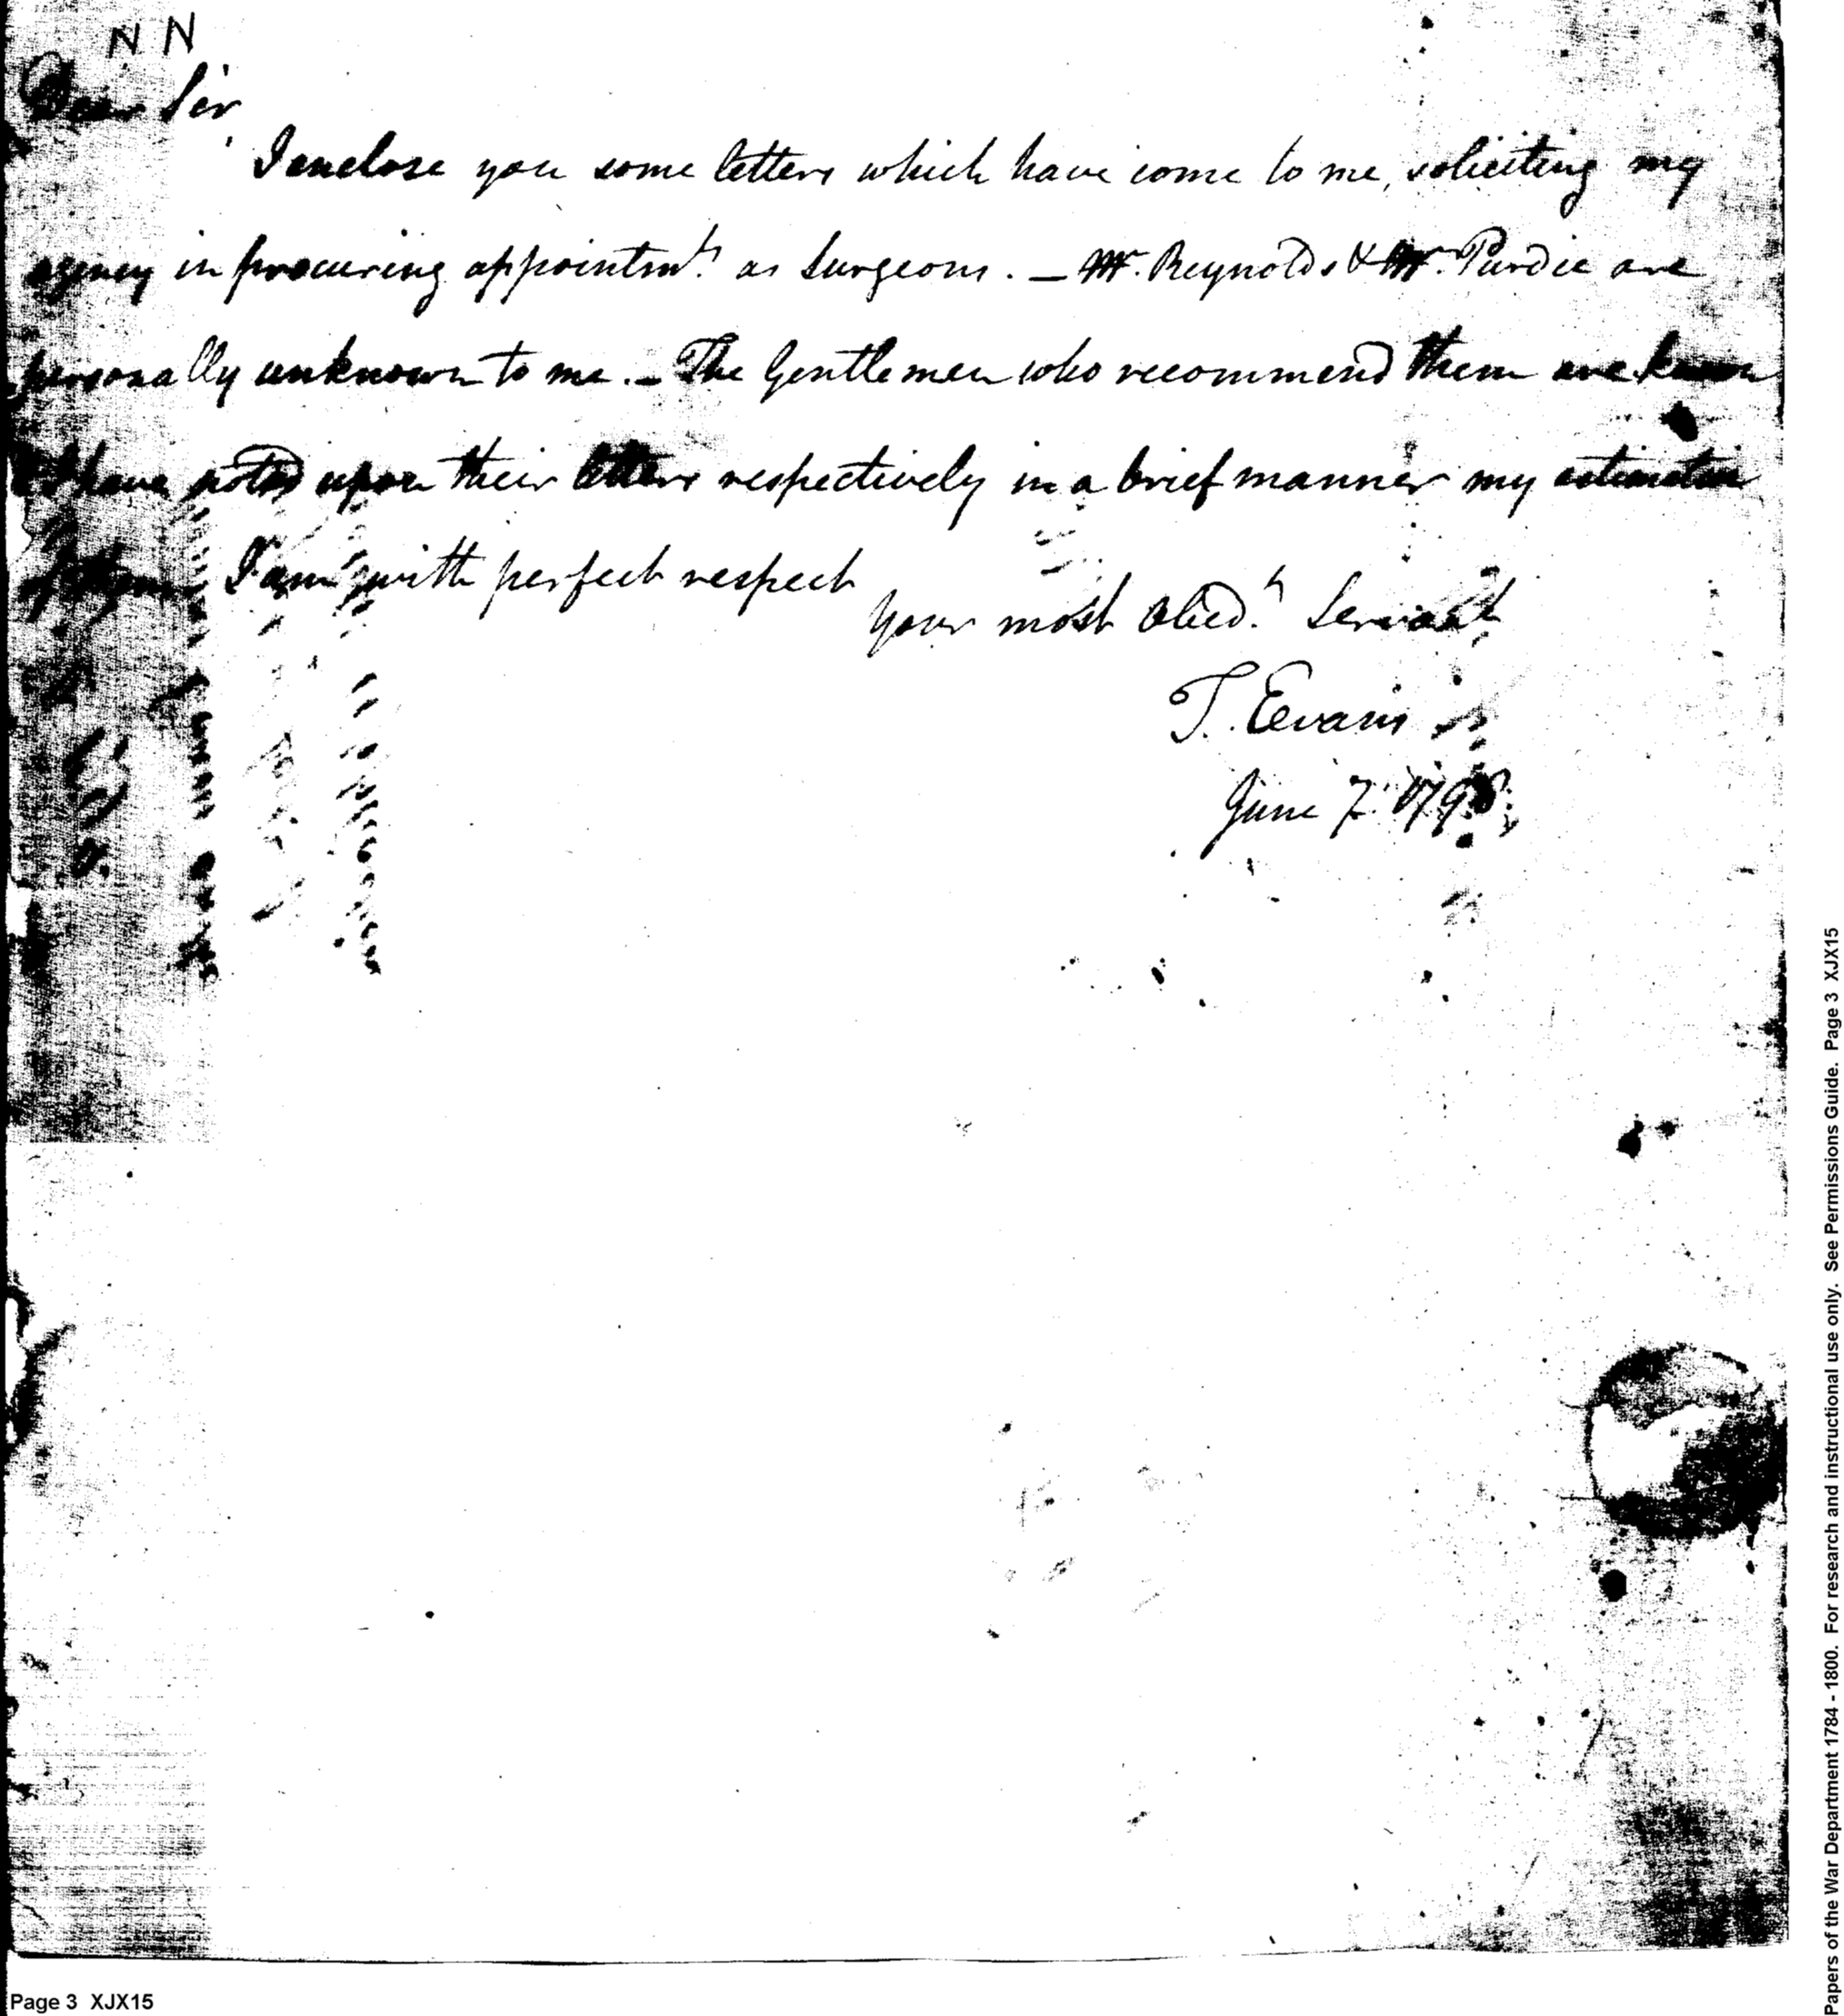 N N
Dear Sir
I enclose you some letters which have come to me, soliciting my
agency in procuring appointmt. as Surgeons. – Mr. Reynolds & Mr. Purdie are
personally unknown to me. – The Gentlemen who recommend them are known
I have noted upon their letters respectively in a brief manner my estimation
of them I am with perfect respect
your most Obedt. Servant
T. Evans
June 7. 1798.
Page 3 XJX15
Papers of the War Department 1784 - 1800. For research and instructional use only. See Permissions Guide. Page 3 XJX15